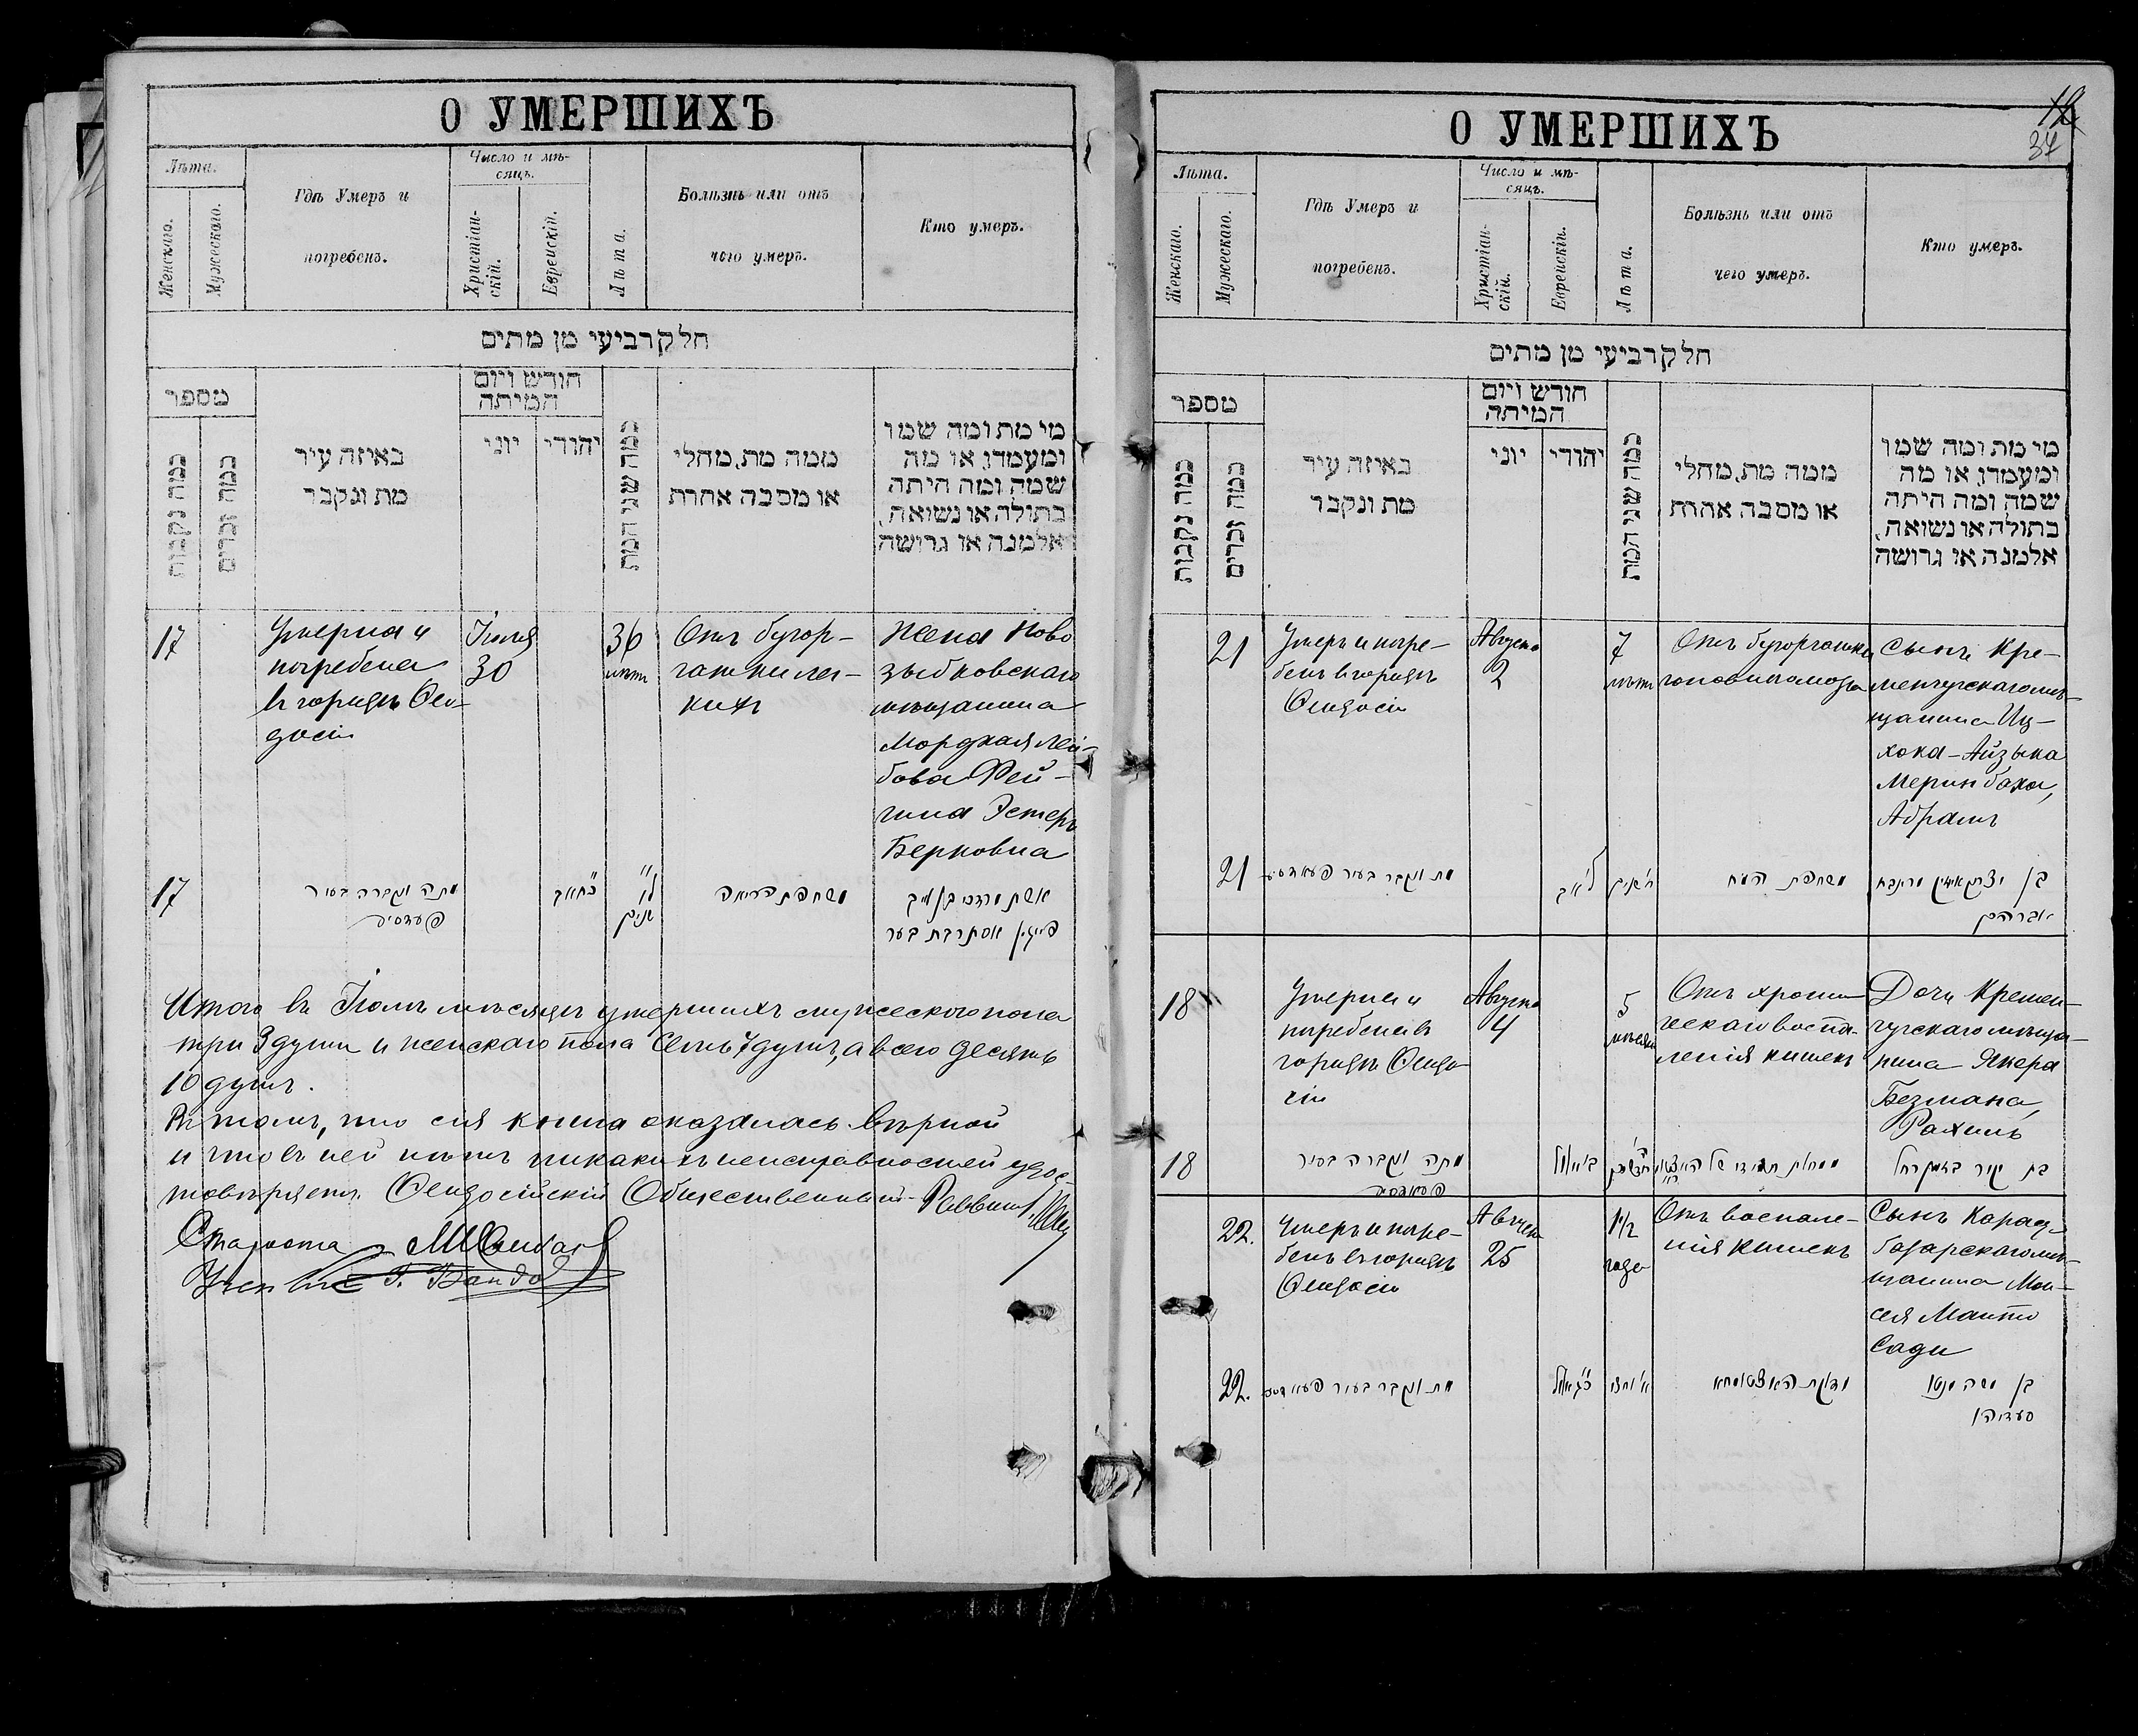 О УМЕРШИХЪ
Лѣта.
Женскаго.
Мужескаго.
Гдѣ Умеръ и
погребенъ.
Число и мѣ-
сяцъ.
Христіан-
скій.
Еврейскій.
Лѣта.
Болѣзнь или отъ
чего умеръ.
Кто умеръ.
חלק רביעי מן מתים
מספר
כמה נקבות
כמה זכרים
באיזה עיר
מת ונקבר
חודש ויום
המיתה
יוני
יהודי
כמה שני המת
ממה מת, מחלי
או מסבה אחרת
מי מת ומה שמו
ומעמדו, או מה
שמה ומה היתה
בתולה או נשואה,
אלמנה או גרושה
17
Умерла и
погребена
въ городѣ Ѳео-
досіи
Іюля
30
36
лѣтъ
Отъ бугор-
чатки лег-
кихъ
Жена Ново
зыбковскаго
мѣщанина
Мордхая Лей-
бова Фей-
гина Эстеръ
Берковна
17
מתה ונקברה בעיר
כ״ח אב
ל״ו
שנים
שחפת הריאה
אשת מרדכי בן לייב
פייגין אסתר בת בער
Итого въ Іюлѣ мѣсяцѣ умершихъ мужескаго пола
три 3 души и женскаго пола семь 7 душъ, а всего десять
10 душъ.
Въ томъ, что сія книга оказалась вѣрной
и что въ ней нѣтъ никакихъ неисправностей удос-
товѣряетъ Ѳеодосійскій Общественный Раввинъ
Староста
О УМЕРШИХЪ
12
34
Лѣта.
Женскаго.
Мужескаго.
Гдѣ Умеръ и
погребенъ.
Число и мѣ-
сяцъ.
Христіан-
скій.
Еврейскій.
Лѣта.
Болѣзнь или отъ
чего умеръ.
Кто умеръ.
חלק רביעי מן מתים
מספר
כמה נקבות
כמה זכרים
באיזה עיר
מת ונקבר
חודש ויום
המיתה
יוני
יהודי
כמה שני המת
ממה מת, מחלי
או מסבה אחרת
מי מת ומה שמו
ומעמדו, או מה
שמה ומה היתה
בתולה או נשואה,
אלמנה או גרושה
21
Умеръ и погре-
бенъ въ городѣ
Ѳеодосіи
Августа
2
7
лѣтъ
Отъ бугорчатки
головнаго мозга
Сынъ Кре-
менчугскаго мѣ-
щанина Иц-
хока-Айзыка
Меринбаха,
Абрамъ
21
מת ונקבר בעיר
שחפת המח
בן יצחק אייזיק
אברהם
18
Умерла и
погребена въ
городѣ Ѳеодо-
сіи
Августа
4
5
мѣсяц
Отъ хрони
ческаго воспа-
ленія кишекъ
Дочь Кремен-
чугскаго мѣща-
нина Якера
Безмана,
Рахиль
18
מתה ונקברה בעיר
22.
Умеръ и погре-
бенъ въ городѣ
Ѳеодосіи
Августа
25
1½
года
Отъ воспале-
нія кишекъ
Сынъ Карасу-
базарскаго мѣ-
щанина Мои-
сея Манто
Сади
22.
מת ונקבר בעיר
בן משה מנטו
סעדיה